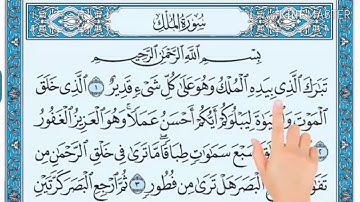 سُورَةُ المُلْكِ
بِسْمِ اللَّهِ الرَّحْمَٰنِ الرَّحِيمِ
تَبَٰرَكَ ٱلَّذِى بِيَدِهِ ٱلْمُلْكُ وَهُوَ عَلَىٰ كُلِّ شَىْءٍ قَدِيرٌ ١ ٱلَّذِى خَلَقَ
ٱلْمَوْتَ وَٱلْحَيَوٰةَ لِيَبْلُوَكُمْ أَيُّكُمْ أَحْسَنُ عَمَلًا ۚ وَهُوَ ٱلْعَزِيزُ ٱلْغَفُورُ
سَبْعَ سَمَٰوَٰتٍ طِبَاقًا ۖ مَّا تَرَىٰ فِى خَلْقِ ٱلرَّحْمَٰنِ مِن
ٱلْبَصَرَ هَلْ تَرَىٰ مِن فُطُورٍ ٣ ثُمَّ ٱرْجِعِ ٱلْبَصَرَ كَرَّتَيْنِ